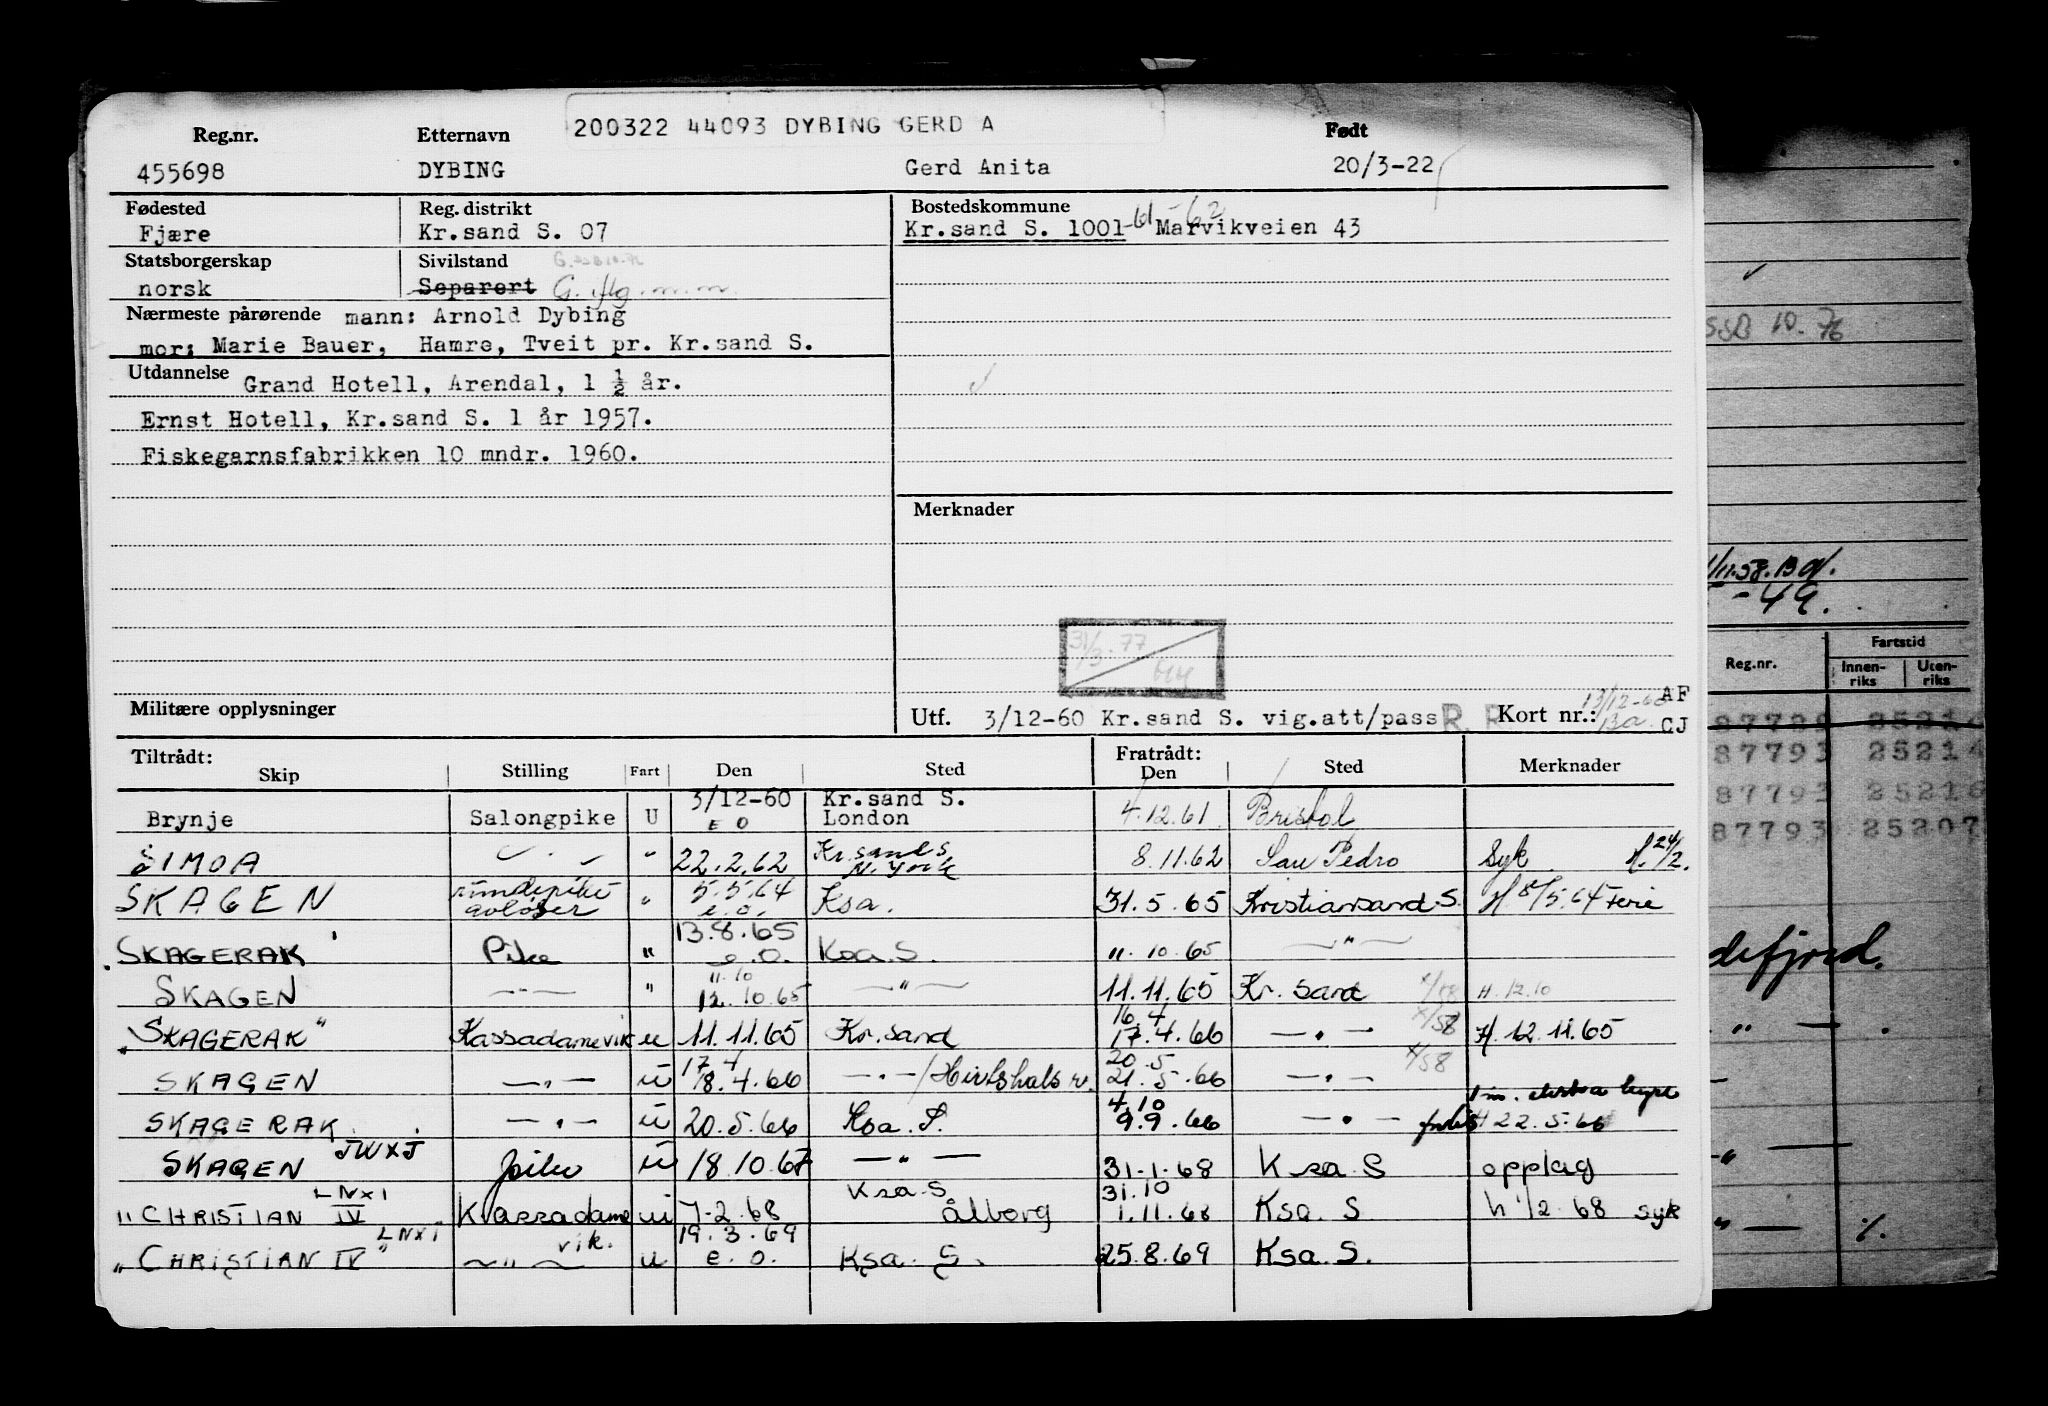 200322 44093 DYBING GERD A
Reg.nr. Etternavn Født
455698 DYBING Gerd Anita 20/3-22
Fødested Reg. distrikt Bostedskommune
Fjære Kr.sand S. 07 Kr.sand S. 1001 -61-62 Marvikveien 43
Statsborgerskap Sivilstand
norsk Separert G.
Nærmeste pårørende mann: Arnold Dybing
mor: Marie Bauer, Hamre, Tveit pr. Kr.sand S.
Utdannelse Grand Hotell, Arendal, 1 ½ år.
Ernst Hotell, Kr.sand S. 1 år 1957.
Fiskegarnsfabrikken 10 mndr. 1960.
Merknader
31/3.77
Militære opplysninger
Utf. 3/12-60 Kr.sand S. vig.att/pass R. R Kort nr.: 13/12-60 Ba. AF CJ
Tiltrådt: Fratrådt:
Skip Stilling Fart Den Sted Den Sted Merknader
Brynje Salongpike U 3/12-60 E O Kr.sand S. London 4.12.61 Bristol
SIMOA " 22.2.62 Kr.sand S N.York 8.11.62 San Pedro Syk H.24/2.
SKAGEN avløser " 5.5.64 e.o. Ksa. 31.5.65 Kristiansand S. H 8/5.64 Ferie
SKAGERAK Pike " 13.8.65 e.o. Ksa.S. 11.10.65 —"—
SKAGEN —"— " 11.10 12.10.65 —"— 11.11.65 Kr.sand H.12.10
"SKAGERAK" Kassadamevik u 11.11.65 Kr.sand 16.4 17.4.66 —"— H.12.11.65
SKAGEN —"— u 17.4 18.4.66 —"—/Hirtshals 20.5 21.5.66 —"—
SKAGERAK —"— u 20.5.66 Ksa.S. 4.10 9.9.66 —"— H 22.5.66
SKAGEN JWXJ pike u 18.10.67 —"— 31.1.68 Ksa S opplag
"CHRISTIAN IV LNXI Kassadame vik. u 7.2.68 Ksa.S Ålborg 31.10 1.11.68 Ksa. S syk
"CHRISTIAN IV" LNXI —"— u 19.3.69 e.o. Ksa. S. 25.8.69 Ksa.S.
10.76
11.58.
-49.
Reg.nr. Fartstid
Innenriks Utenriks
87793 2521
87793 25216
87793 25207
defjord.
" — .